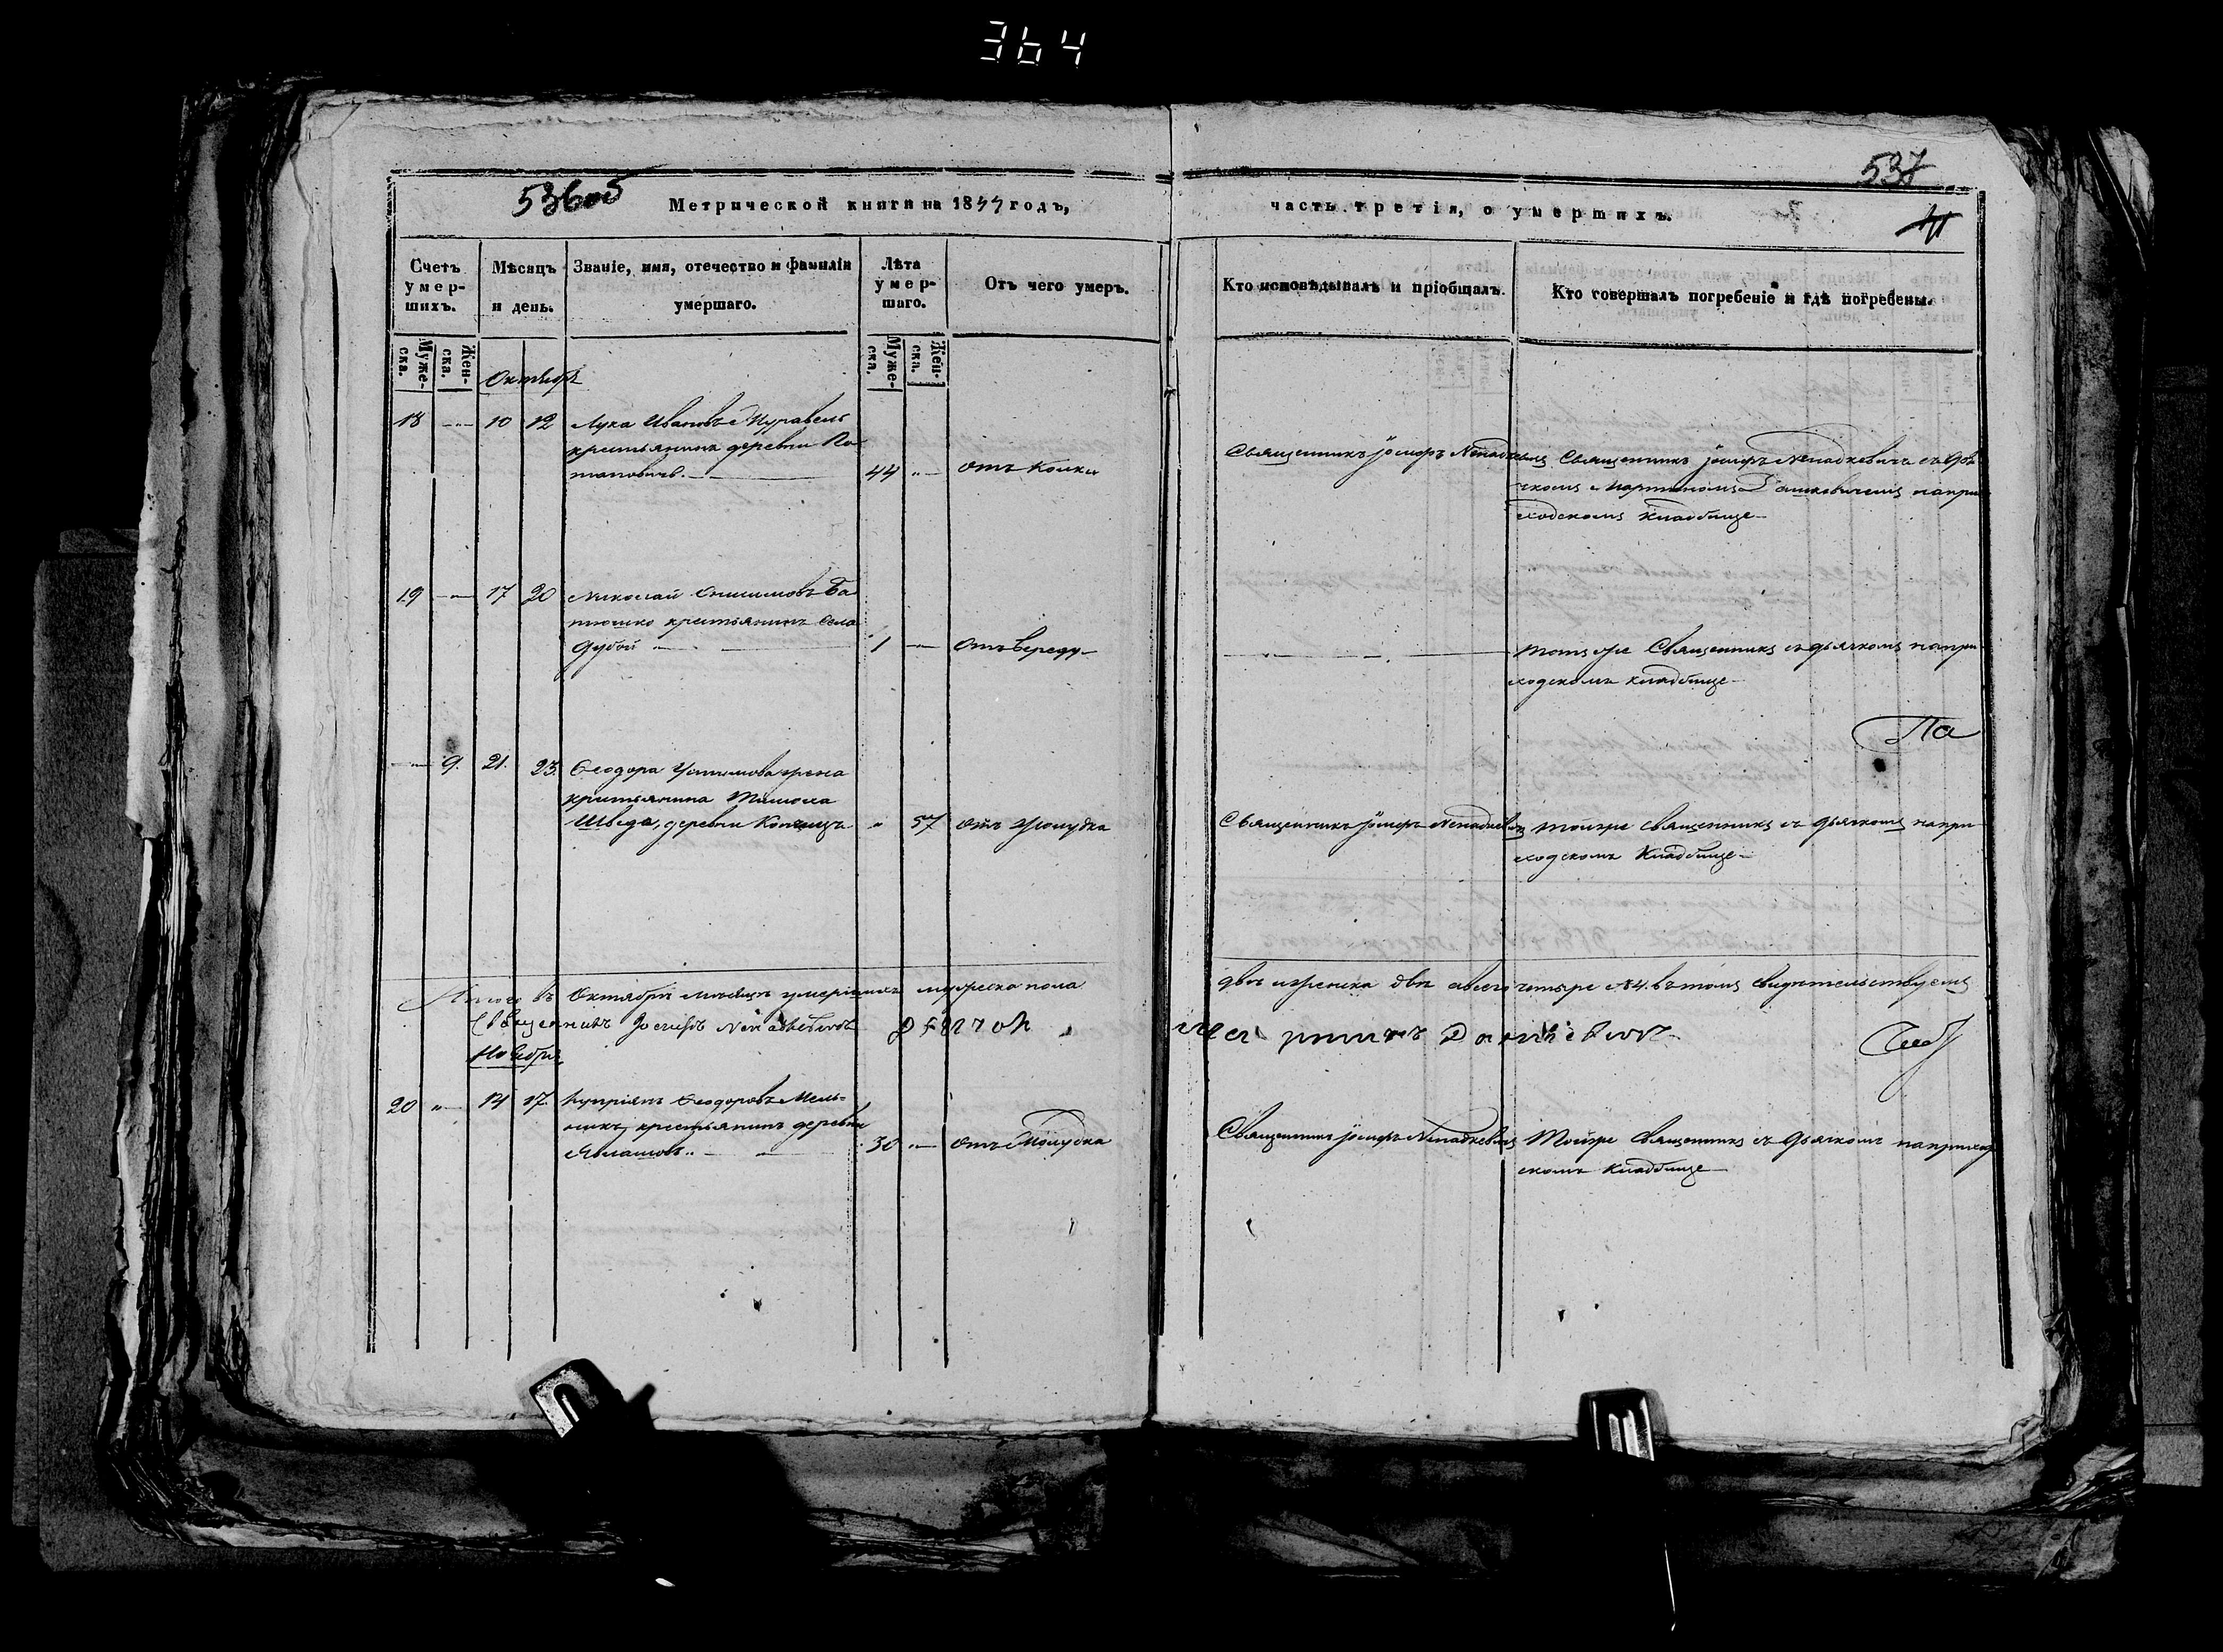 364
536об
537
41
Метрической книги на 1844 годъ,
часть третія, о умершихъ.
Счетъ умер-шихъ.
Мѣсяцъ и день.
Званіе, имя, отечество и фамилія умершаго.
Лѣта умер-шаго.
Отъ чего умеръ.
Кто исповѣдывалъ и пріобщалъ.
Кто совершалъ погребеніе и гдѣ погребены.
Муже-ска.
Жен-ска.
Муже-ска.
Жен-ска.
Октябрь
18 10 12 Лука Ивановъ Журавель
крестьянинъ деревни По-
таповичъ.
44 отъ Колки
Священникъ Іосифъ Ненадкевичъ
Священникъ Іосифъ Ненадкевичъ съ дья-
чкомъ Мартиномъ Дашкевичемъ на при-
ходскомъ кладбище
19 17 20 Николай Онисимовъ Ба
тюшко крестьянинъ села
Дубой
1 отъ вереду
тотъ же Священникъ съ дьячкомъ на при
ходскомъ кладбище
Па
9. 21. 23. Феодора Устимова жена
крестьянина
Шведа, деревни
57 отъ желудка
Священникъ Іосифъ Ненадкевичъ
тойже священникъ съ дьячкомъ на при-
ходскомъ кладбище
Итого въ Октябрѣ мѣсяцѣ умершихъ мужеска пола
двѣ и женска двѣ а всего четыре №4. въ томъ свидѣтельствуемъ
Священникъ Іосифъ Ненадкевичъ
Дьячокъ
Мартинъ Дашкевичъ
Ноябрь
20 14 17. Купріянъ Феодоровъ Мель-
никъ, крестьянинъ деревни
30 отъ Желудка
Священникъ Іосифъ Ненадкевичъ
Тойже Священникъ съ дьячкомъ на приход
скомъ кладбище